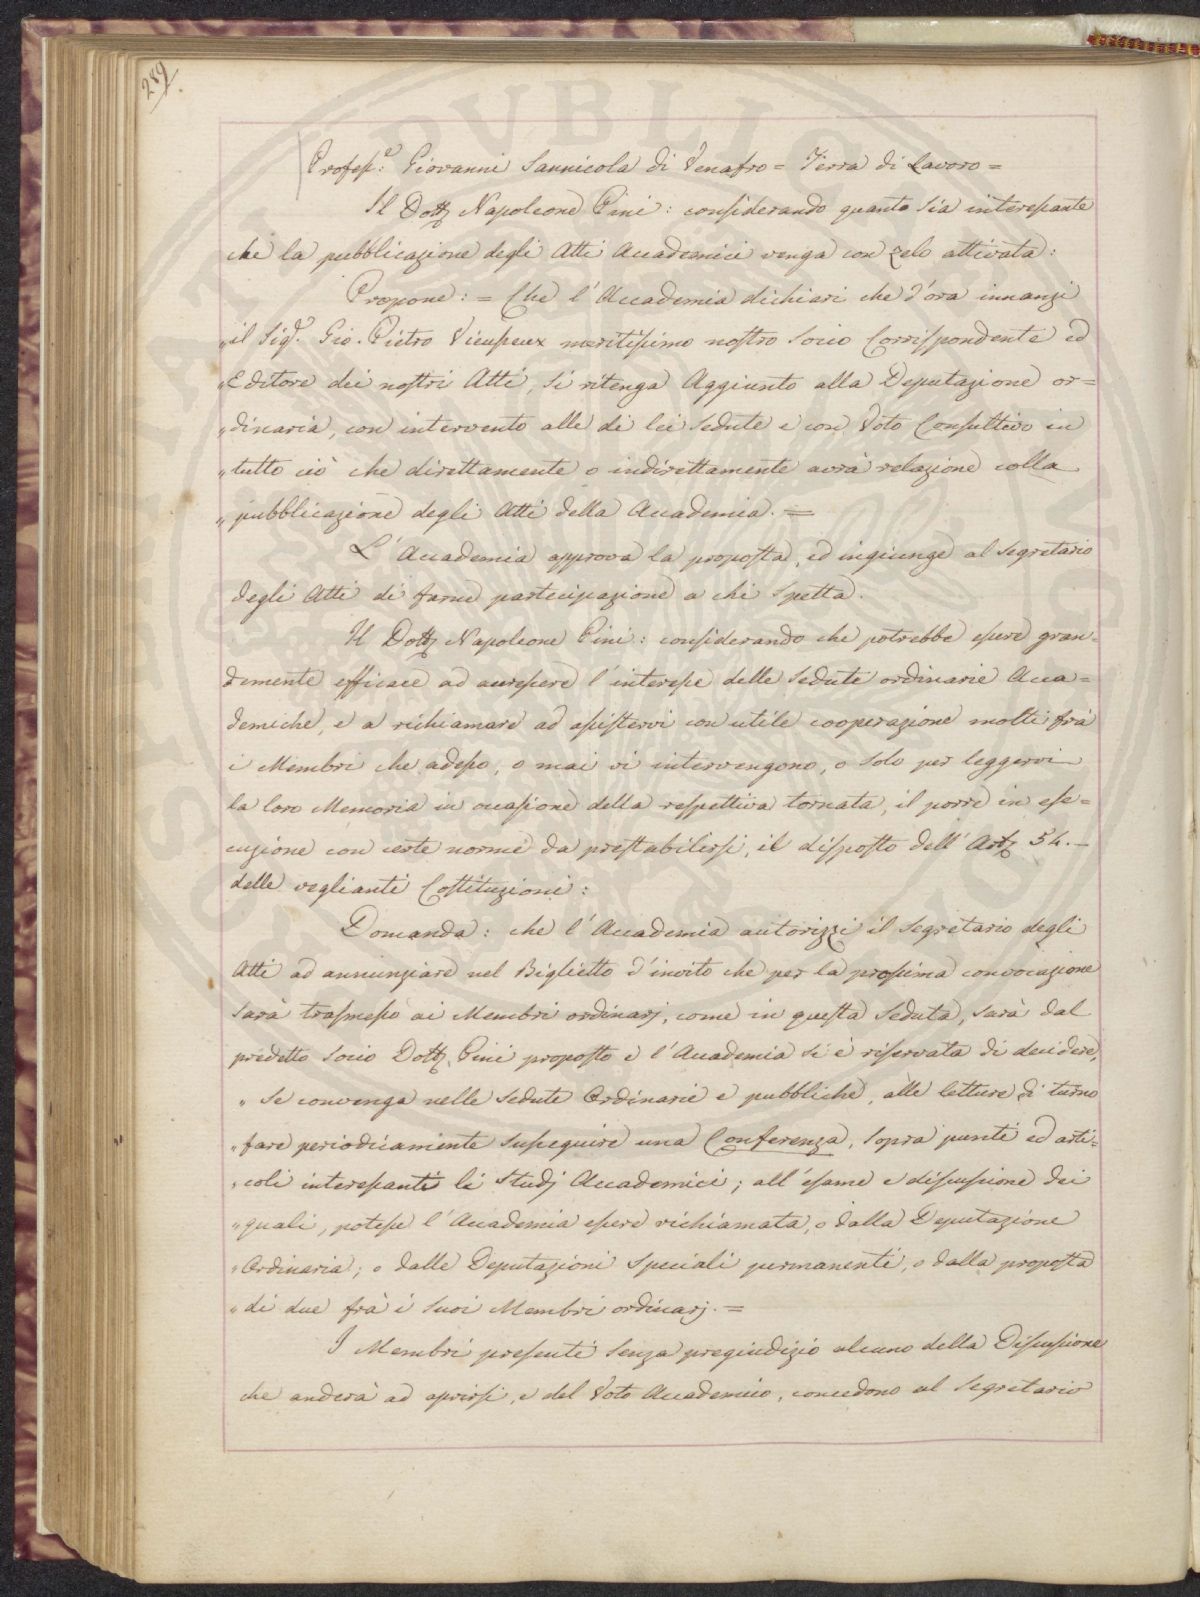 289
Profess.e Giovanni Sannicola di Venafro = Terra di Lavoro =
Il Dott. Napoleone Pini: considerando quanto sia interessante
che la pubblicazione degli Atti Accademici venga con zelo attivata:
Propone: = Che l'Accademia dichiari che d'ora innanzi
"il Sig.r Gio. Pietro Vieusseux meritissimo nostro Socio Corrispondente ed
"Editore dei nostri Atti, si ritenga Aggiunto alla Deputazione or=
"dinaria, con intervento alle di lei Sedute e con Voto Consultivo in
"tutto ciò che direttamente o indirettamente avrà relazione colla
"pubblicazione degli Atti della Accademia. =
L'Accademia approva la proposta, ed ingiunge al Segretario
degli Atti di farne partecipazione a chi Spetta.
Il Dott. Napoleone Pini: considerando che potrebbe essere gran=
demente efficace ad accrescere l'interesse delle Sedute ordinarie Acca=
demiche, e a richiamare ad assistervi con utile cooperazione molti frà
i Membri che adesso, o mai vi intervengono, o Solo per leggervi
la loro Memoria in occasione della respettiva tornata, il porre in ese=
cuzione con certe norme da prestabilirsi, il disposto dell'Art. 54. —
delle veglianti Costituzioni:
Domanda: che l'Accademia autorizzi il Segretario degli
Atti ad annunziare nel Biglietto d'invito che per la prossima convocazione
sarà trasmesso ai Membri ordinarj, come in questa Seduta, sarà dal
predetto Socio Dott. Pini proposto e l'Accademia si è riservata di decidere,
" Se convenga nelle Sedute Ordinarie e pubbliche, alle letture di turno
"fare periodicamente susseguire una Conferenza, Sopra punti ed arti=
"coli interessanti li Studj Accademici; all'esame e discussione dei
"quali, potesse l'Accademia essere richiamata, o dalla Deputazione
"Ordinaria; o dalle Deputazioni Speciali permanenti, o dalla proposta
"di due frà i Suoi Membri ordinarj. =
I Membri presenti Senza pregiudizio alcuno della Discussione
che anderà ad aprirsi, e del Voto Accademico, concedono al Segretario